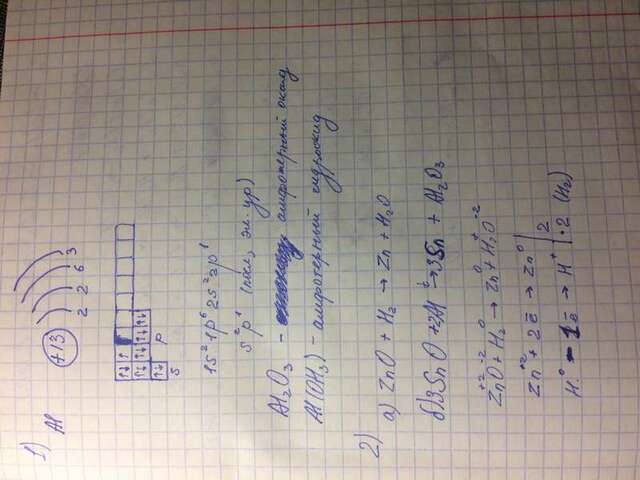 1) Al +13 2 2 6 3
↑↓ ↑
↑↓ ↑↓ ↑↓ ↑↓
↑↓
S P
1S² 1p⁶ 2S² 2p¹
S² p¹ (посл, эл. ур)
Al₂O₃ - амфотерный оксид
Al(OH₃) - амфотерный гидроксид
2)
а) ZnO + H₂ → Zn + H₂O
б) 3SnO + 2Al → 3Sn + Al₂O₃
+2 -2 0 0 + -2
ZnO + H₂ → Zn + H₂O
Zn⁺² + 2ē → Zn⁰ | 2
H₂⁰ - 1ē → H⁺ | ·2 (H₂)